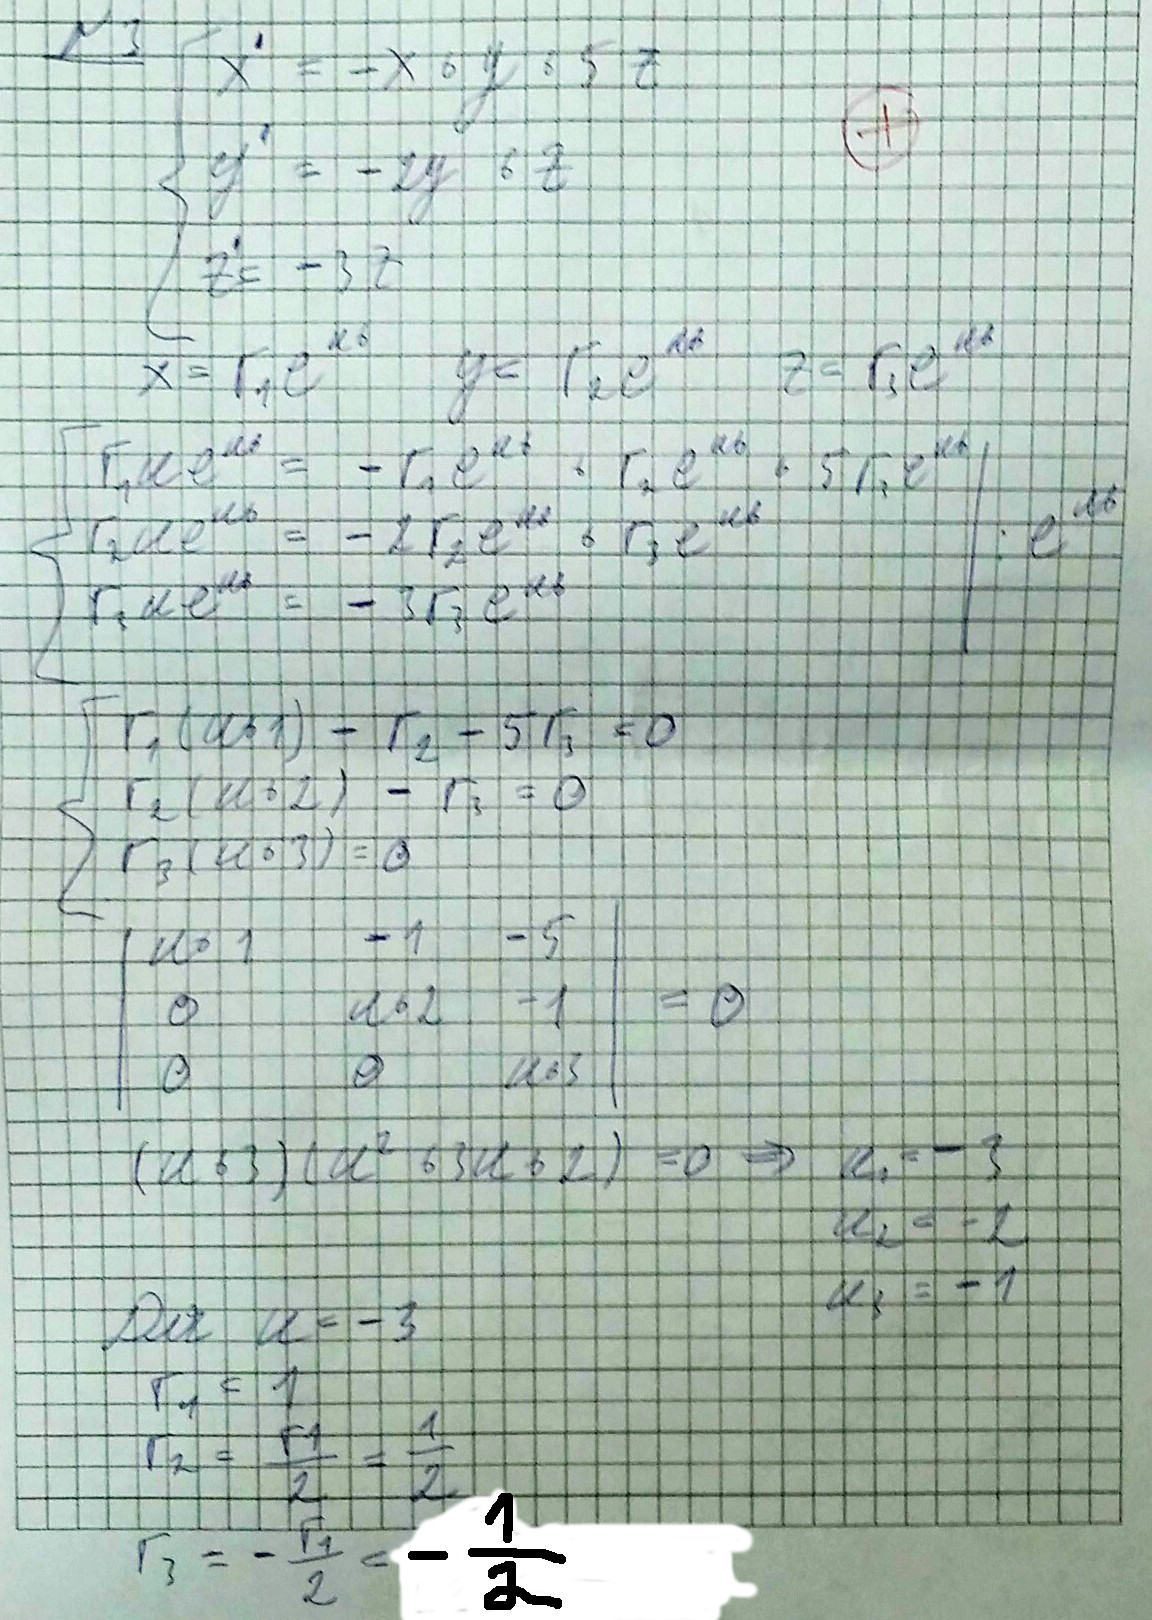 №3
x' = -x + y + 5z
y' = -2y + z
z' = -3z
x = r₁e^{kt} y = r₂e^{kt} z = r₃e^{kt}
r₁ke^{kt} = -r₁e^{kt} + r₂e^{kt} + 5r₃e^{kt}
r₂ke^{kt} = -2r₂e^{kt} + r₃e^{kt} | : e^{kt}
r₃ke^{kt} = -3r₃e^{kt}
r₁(k+1) - r₂ - 5r₃ = 0
r₂(k+2) - r₃ = 0
r₃(k+3) = 0
k+1 -1 -5
0 k+2 -1 = 0
0 0 k+3
(k+3)(k² + 3k + 2) = 0 ⇒ k₁ = -3
k₂ = -2
k₃ = -1
Для k = -3
r₁ = 1
r₂ = r₁/2 = 1/2
r₃ = -r₁/2 = -1/2